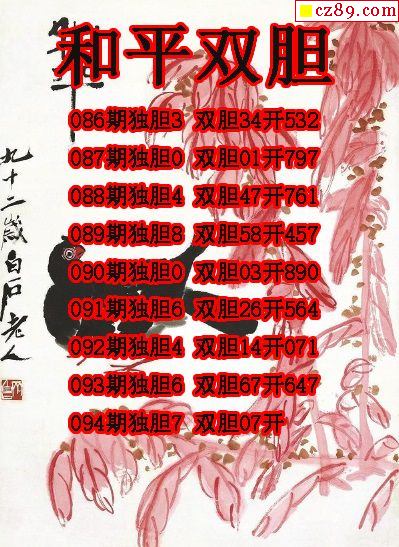 cz89.com
和平
和平双胆
086期独胆3 双胆34开532
087期独胆0 双胆01开797
088期独胆4 双胆47开761
089期独胆8 双胆58开457
090期独胆0 双胆03开890
091期独胆6 双胆26开564
092期独胆4 双胆14开071
093期独胆6 双胆67开647
094期独胆7 双胆07开
九十二岁白石老人